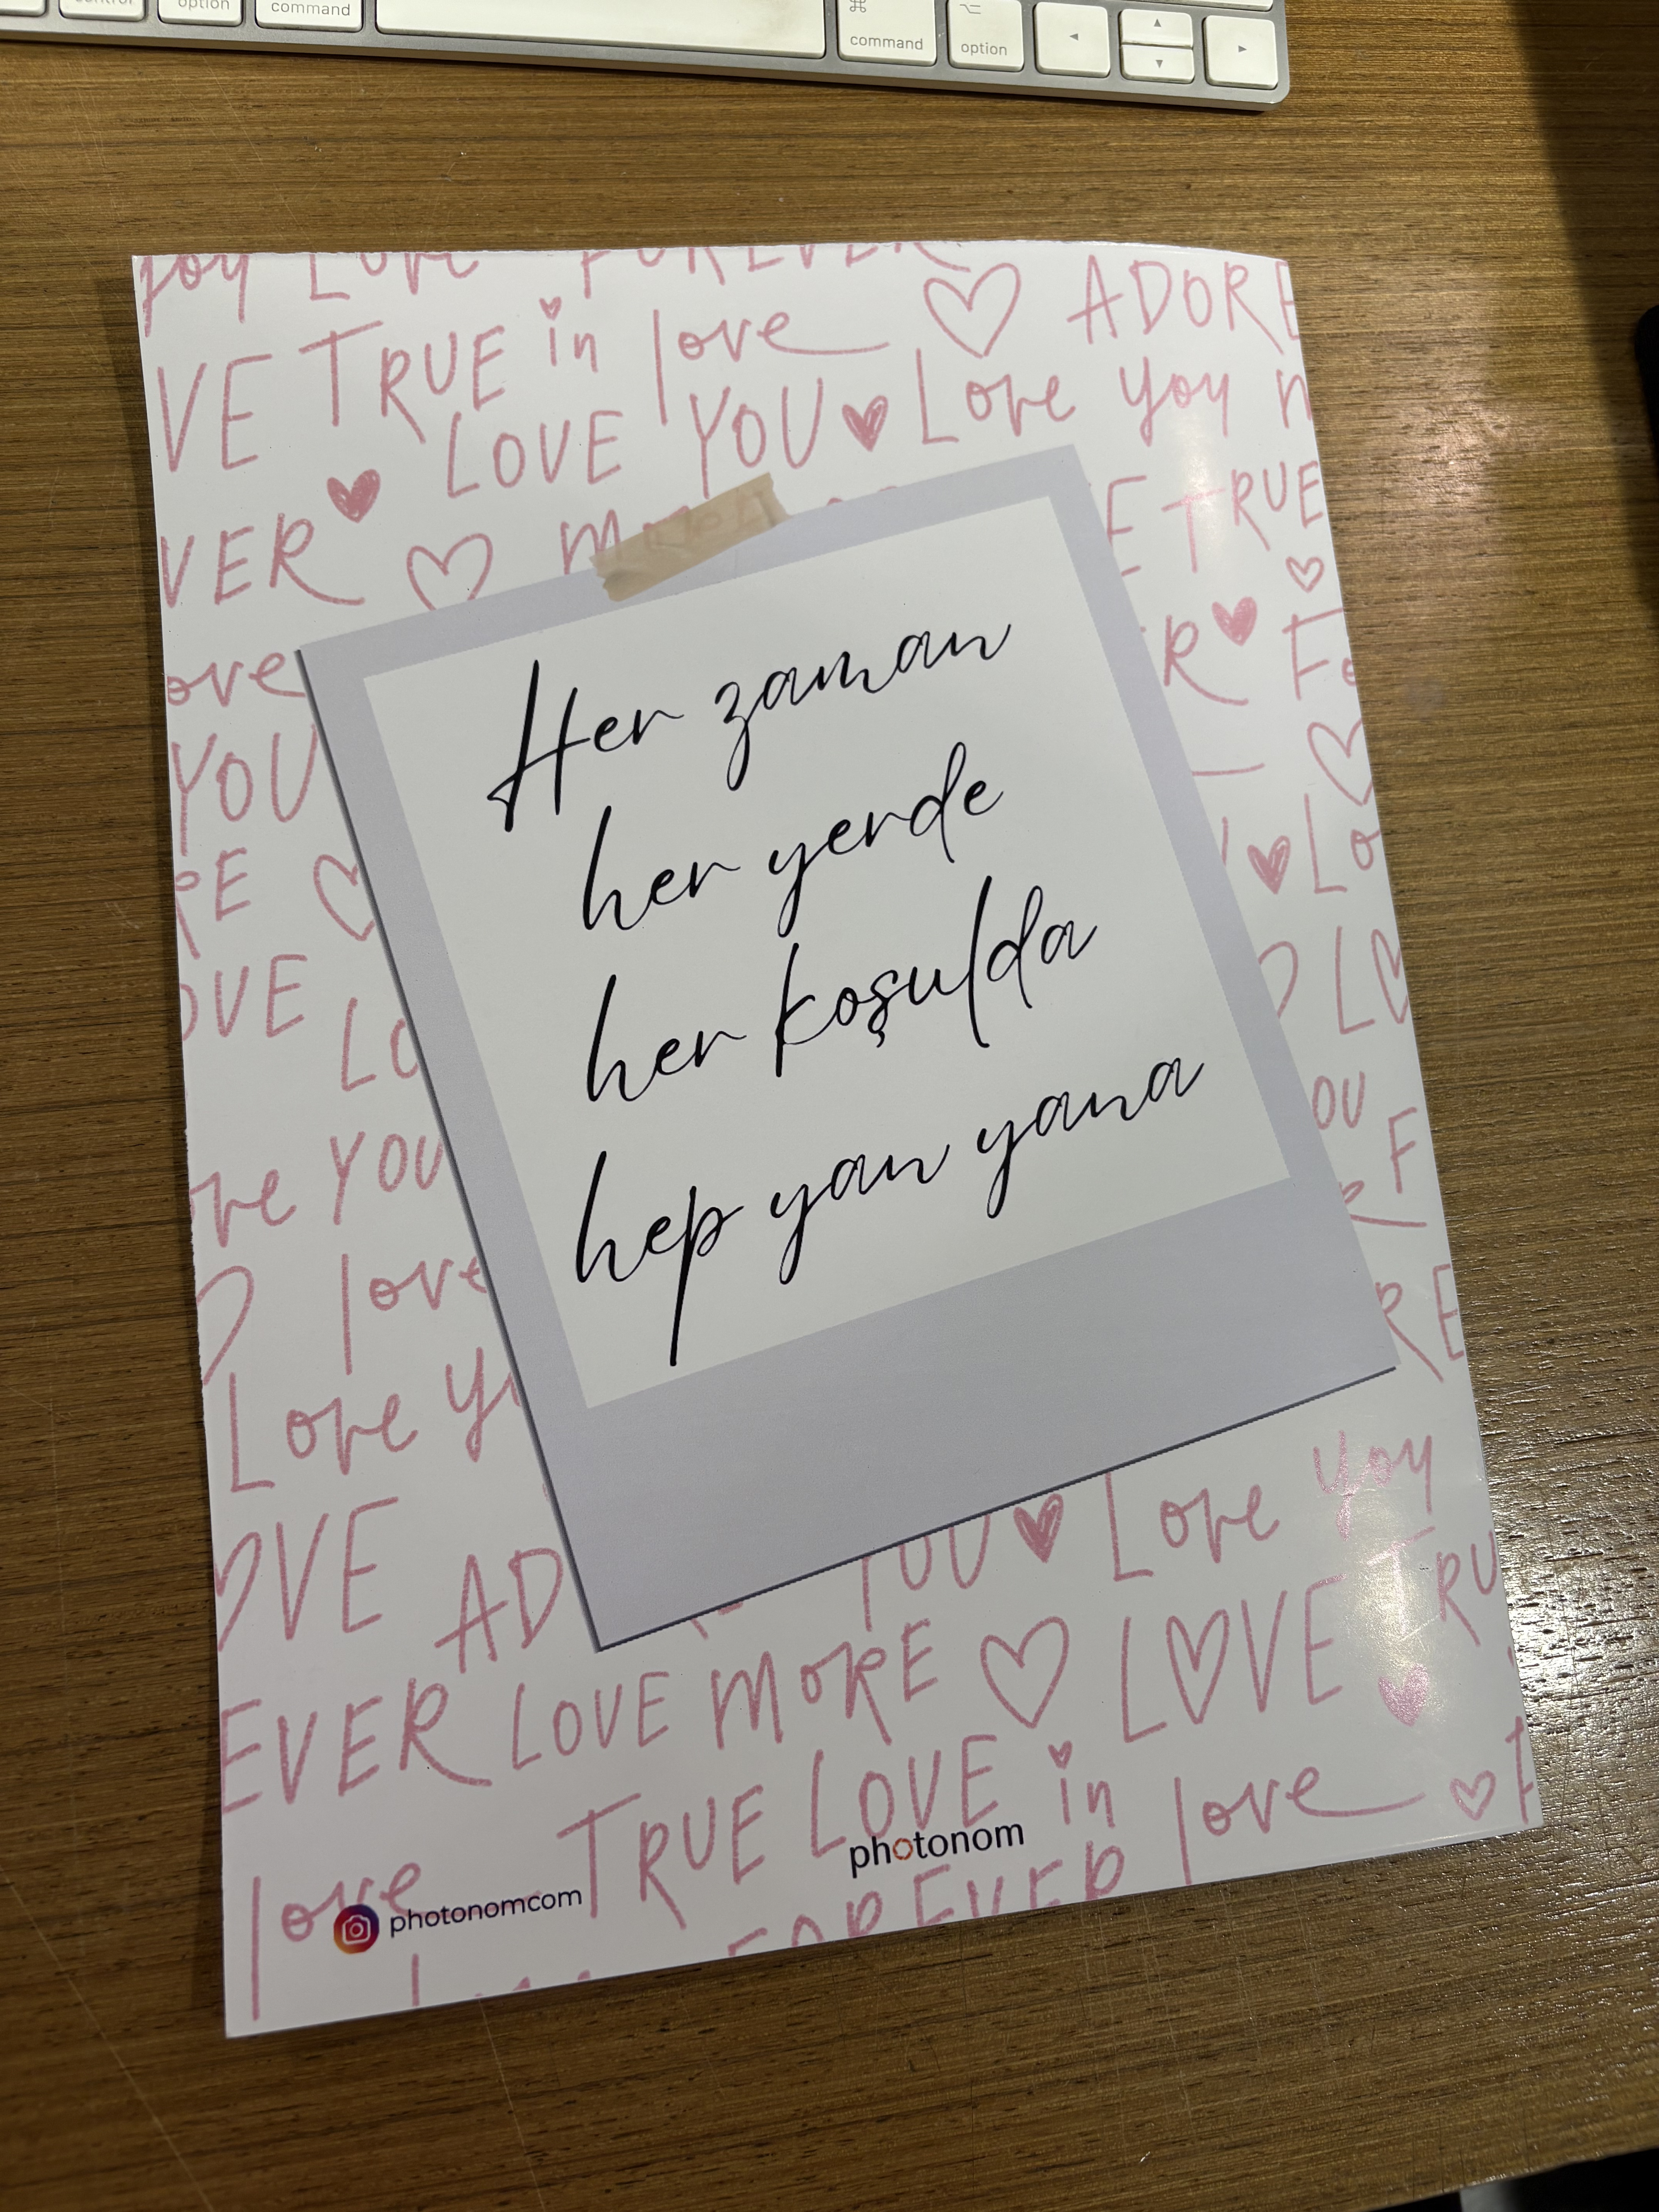 control option command command option
joy Love FOREVER
VE TRUE in love ADORE
LOVE YOU Love you
VER TRUE
ove
YOU
Her zaman
her yerde
her koşulda
hep yan yana
OVE
YOU
love
Love
OVE
Love you
EVER LOVE MORE LOVE
TRUE LOVE in love
photonom
love
photonomcom
FOREVER